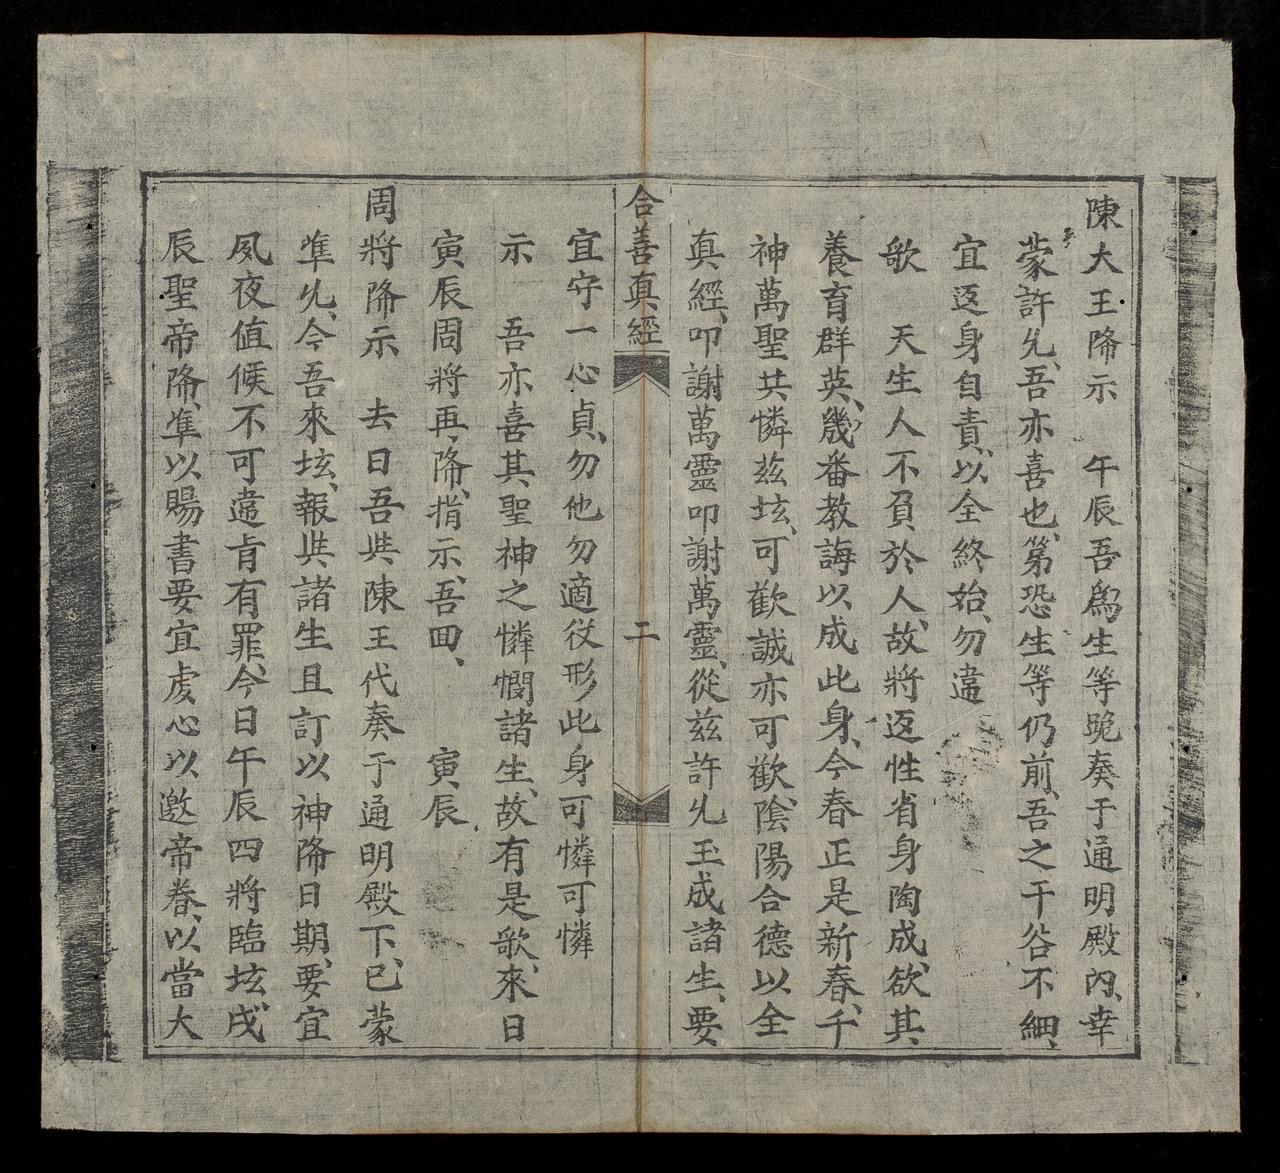 陳大王降示　午辰吾爲生等晩奏于通明殿内、幸
蒙許允、吾亦喜也、第恐生等仍前、吾之干咎不細、
宜返身自責、以全終始、勿違
歌　天生人不負於人、故將返性省身陶成、欲其
養育群英、幾番教誨以成此身、今春正是新春、千
神萬聖共憐兹垓、可歡誠亦可歡、陰陽合德以全
真經、叩謝萬靈叩謝萬靈、從兹許允玉成諸生、要
合善真經　二
宜守一心貞、勿他勿適役形此身可憐可憐
示　吾亦喜其聖神之憐憫諸生、故有是歌、來日
寅辰周將再降、指示、吾回、　寅辰
周將降示　去日吾與陳王代奏于通明殿下、已蒙
準允、今吾來垓、報與諸生且訂以神降日期、要宜
夙夜值候不可違肯有罪、今日午辰四將臨垓、戌
辰聖帝降、準以賜書要宜虔心以邀帝眷、以當大